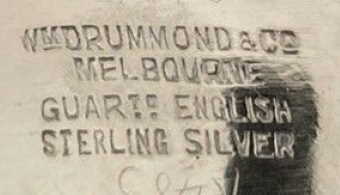 WM DRUMMOND & CO
MELBOURNE
GUARTD ENGLISH
STERLING SILVER